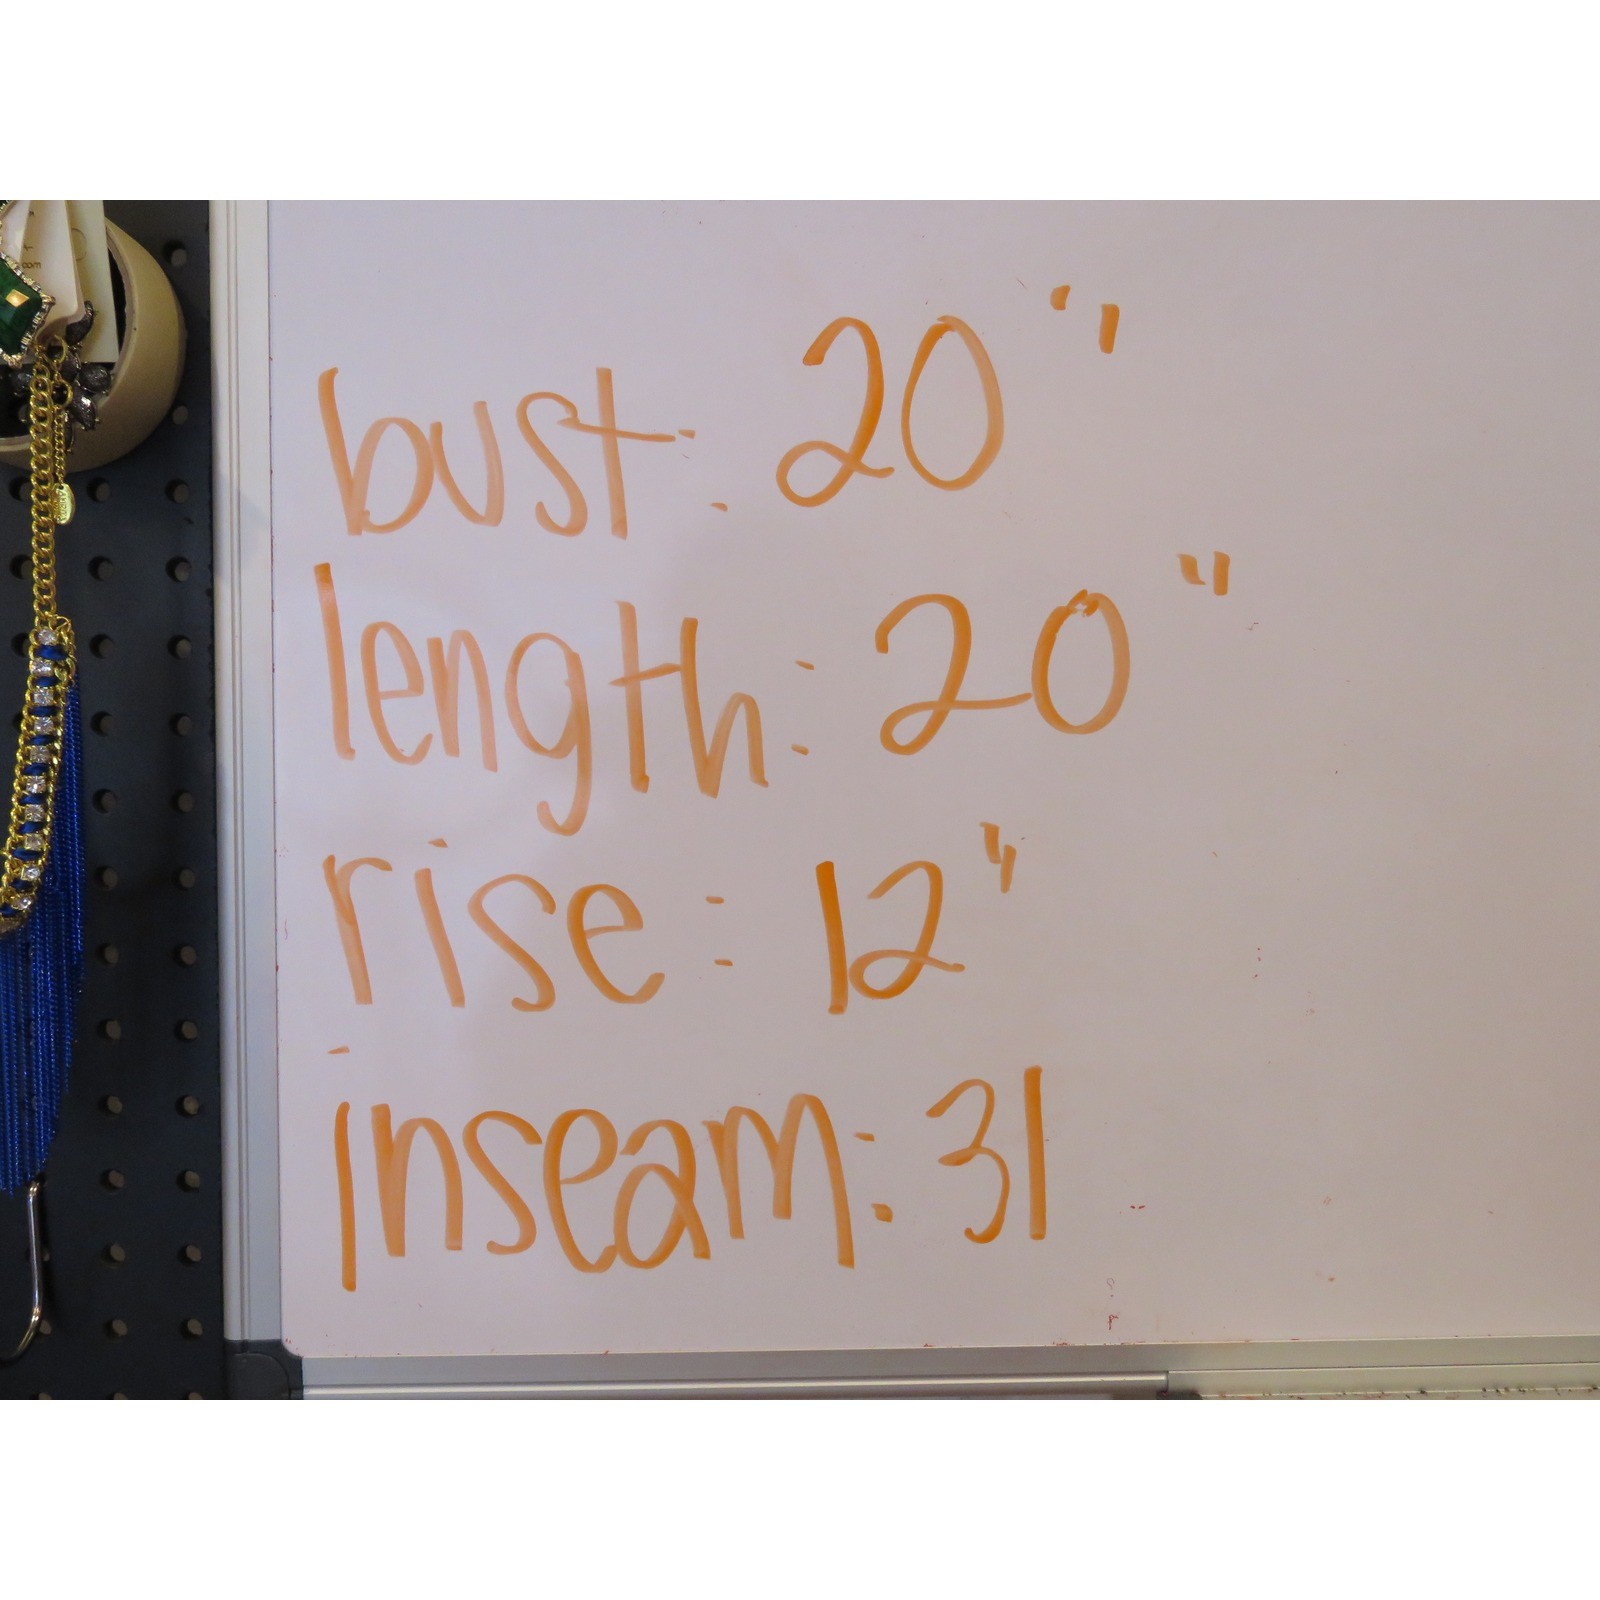 bust: 20"
length: 20"
rise: 12"
inseam: 31